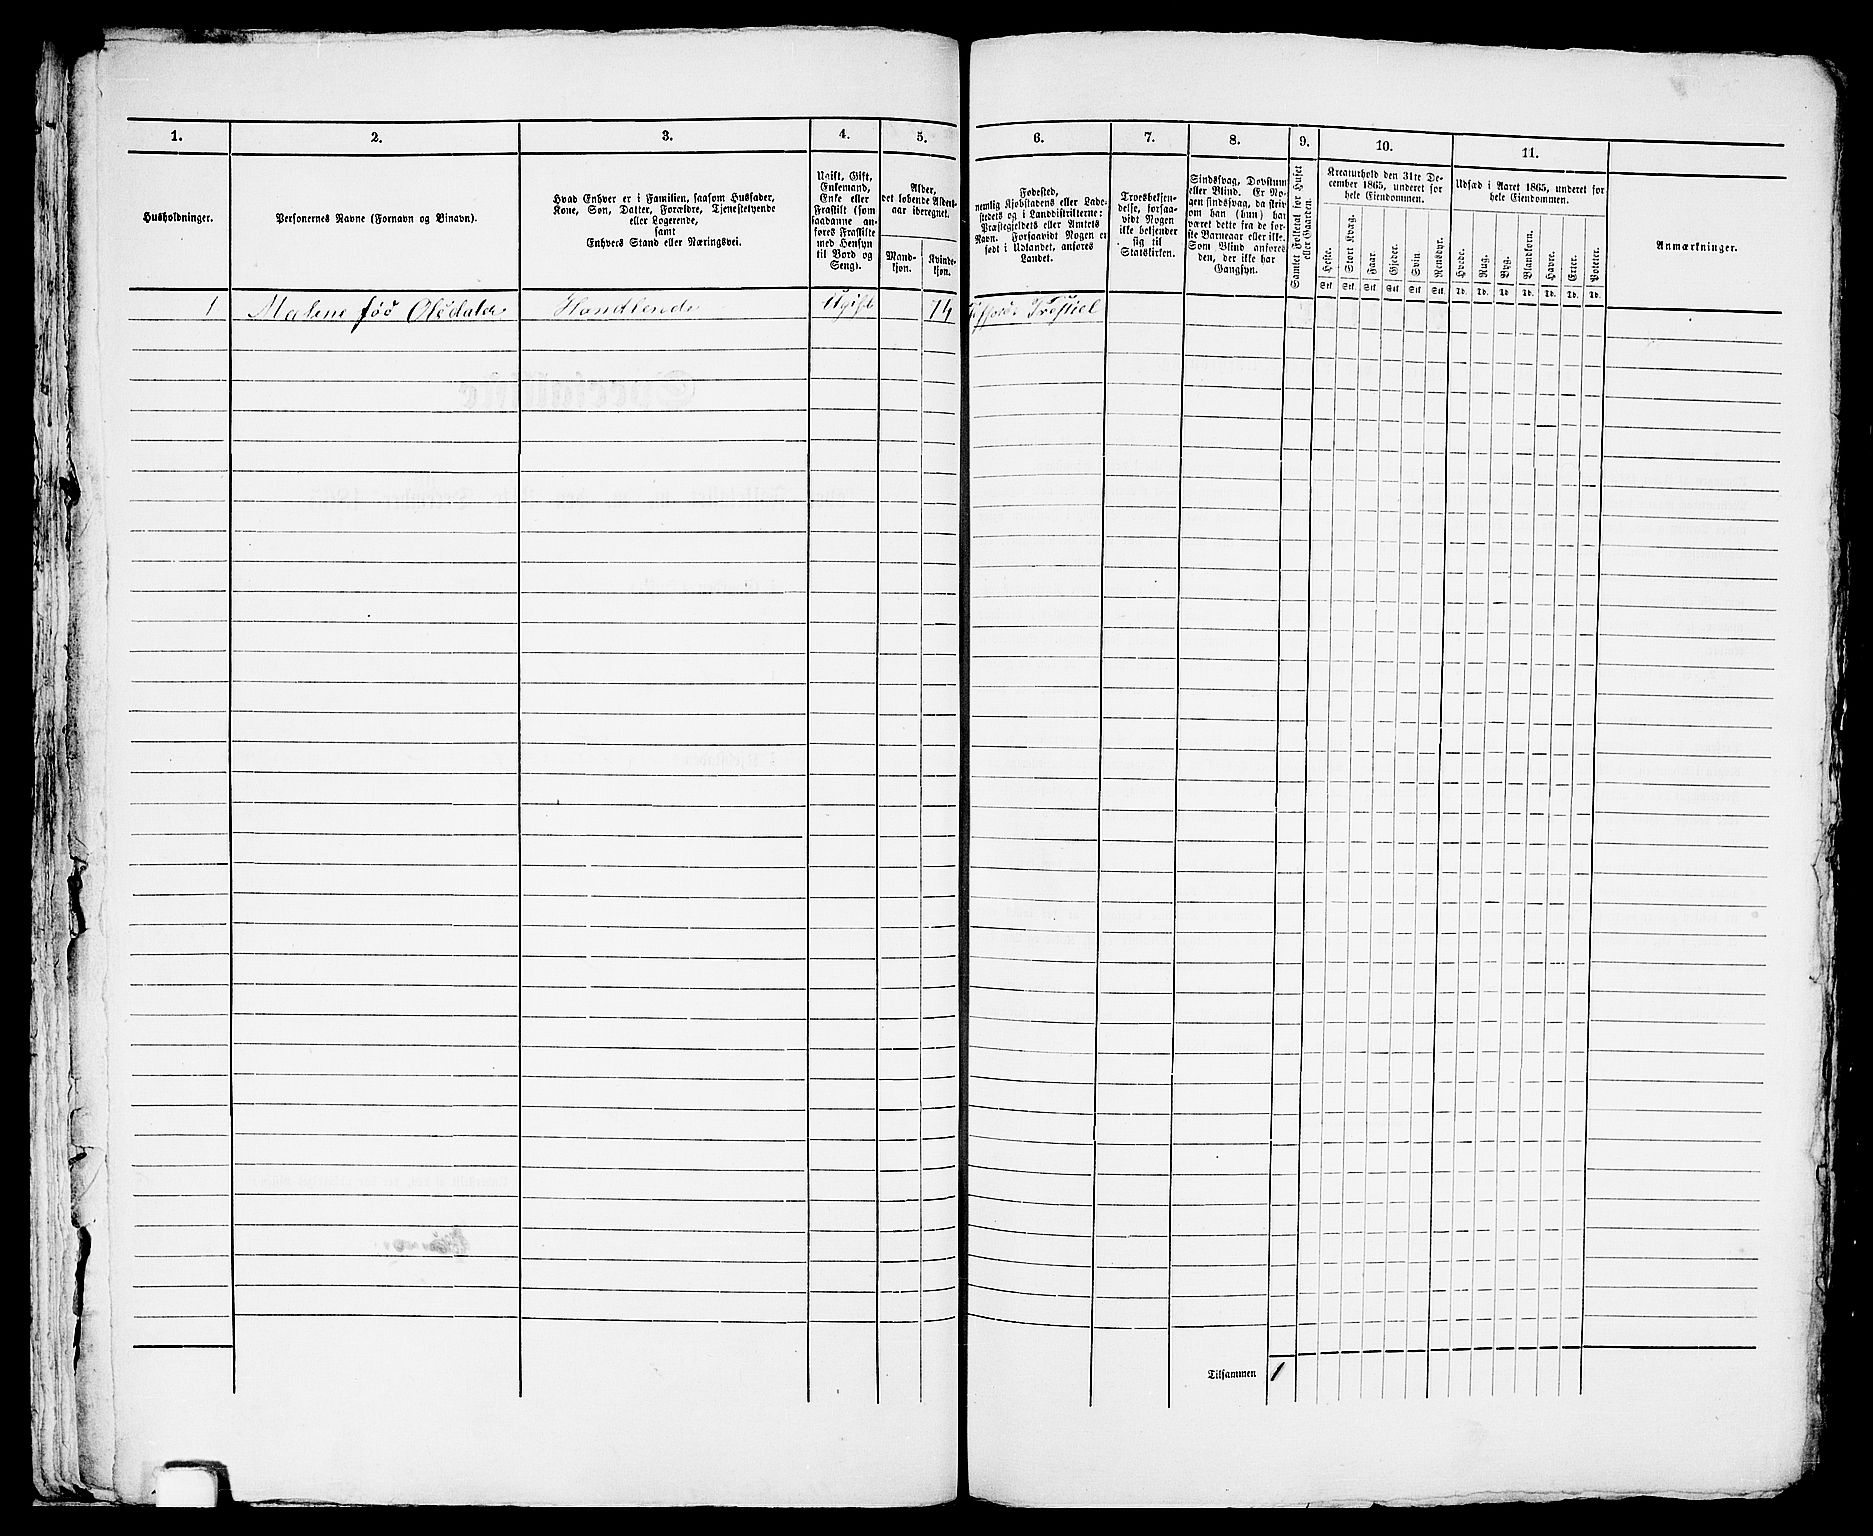 1. 2. 3. 4. 5. 6. 7. 8. 9. 10. 11.
Husholdninger.
Personernes Navne (Fornavn og Binavn).
Hvad Enhver er i Familien, saasom Husfader,
Kone, Søn, Datter, Forældre, Tjenestetyende
eller Logerende,
samt
Enhvers Stand eller Næringsvei.
Ugift, Gift,
Enkemand,
Enke eller
Fraskilt (som
saadanne an-
føres Fraskilte
med Hensyn
til Bord og
Seng).
Alder,
det løbende Alders-
aar iberegnet.
Mand-
kjøn.
Kvinde-
kjøn.
Fødested,
nemlig Kjøbstadens eller Lade-
stedets og i Landdistrikterne:
Præstegjeldets eller Amtets
Navn. Forsaavidt Nogen er
født i Udlandet, anføres
Landet.
Troesbekjen-
delse, forsaa-
vidt Nogen
ikke bekjender
sig til
Statskirken.
Sindssvag, Døvstum
eller Blind. Er No-
gen sindssvag, da skriv
om han (hun) har
været dette fra de før-
ste Barneaar eller ikke.
Som Blind anføres
den, der ikke har
Gangsyn.
Samlet Folketal for Huset
eller Gaarden.
Kreaturhold den 31te De-
cember 1865, underet for
hele Eiendommen.
Heste. Stort Kvæg. Faar. Gjeder. Svin. Rensdyr.
Stk. Stk. Stk. Stk. Stk. Stk.
Udsæd i Aaret 1865, underet for
hele Eiendommen.
Hvede. Rug. Byg. Blandkorn. Havre. Erter. Poteter.
Td. Td. Td. Td. Td. Td. Td.
Anmærkninger.
1 Malene Olsdatter Handlende Ugift 74
Tilsammen 1